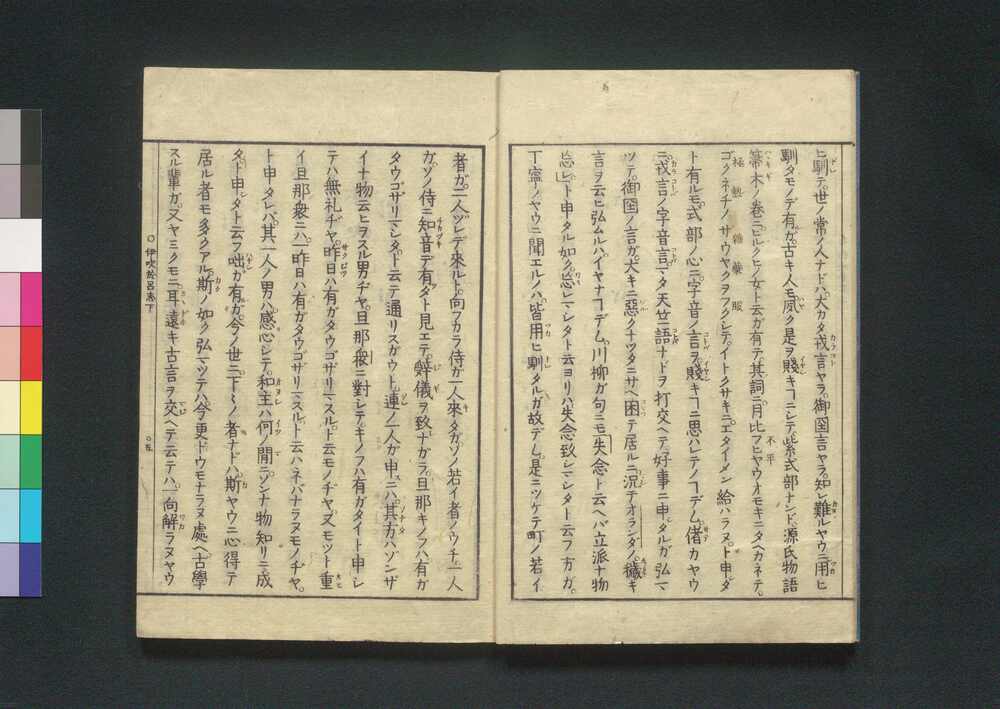 ヒ馴テ。世ノ常ノ人ナドハ。大カタ戎言ヤラ。御国言ヤラ。知レ難ルヤウニ用ヒ
馴タモノデ有ガ。古キ人モ夙ク是ヲ賤キコニシテ。紫式部ナンド。源氏物語
箒木ノ巻ニ。ヒルクヒノ女ト云ガ有テ。其詞ニ。月比フビヤウオモキニタヘカネテ。
ゴクネチノサウヤクヲフクシテ。イトクサキニエタイメン給ハラヌ。ト申ダ
ト有ルモ。式部ノ心ニ。字音ノ言ヲ賤キコニ思ハレテノコデム。偖カヤウ
ニ。戎言ノ字音言。マタ天竺語ナドヲ打交ヘテ。好事ニ申タルガ弘マ
ツテ。御国ノ言ガ大キニ悪クナツタニサヘ困テ居ルニ。況テオランダノ。穢キ
言ヲ云ヒ弘ムルハ。イヤナコデム。川柳ガ句ニモ「失念ト云ヘバ立派ナ物
忘レ」ト申タル如ク。忘レマシタト云ヨリハ。失念致シマシタト云フ方ガ。
丁寧ノヤウニ聞エルノハ。皆用ヒ馴タルガ故デム。是ニツケテ町ノ若イ
者ガ。二人ヅレデ来ルト。向フカラ侍ガ一人来タガ。ソノ若イ者ノウチ。一人
ガ。ソノ侍ニ知音デ有タト見エテ。辞儀ヲ致ナガラ。旦那キノフハ有ガ
タウゴザリマシタ。ト云テ通リスガウト。連ノ一人ガ申スニハ。其方ハゾンザ
イナ物云ヒヲスル男ヂヤ。旦那衆ニ対シテ。キノフハ有ガタイト申シ
テハ無礼ヂヤ。昨日ハ有ガタウゴザリマスル。ト云モノヂヤ。又モツト重
イ旦那衆ニハ。一昨日ハ有ガタウゴザリマスル。ト云ハネバナラヌモノヂヤ。
ト申タレバ。其一人ノ男ハ感心シテ。和主ハ何ノ間ニ。ソンナ物知リニ成
タ。ト申シタト云フ咄ガ有ガ。今ノ世ニ。下々ノ者ナドハ。斯ヤウニ心得テ
居ル者モ多クアル。斯ノ如ク弘マツテハ。今更ドウモナラヌ処ヘ。古学
スル輩ガ。又ヤミクモニ。耳遠キ古言ヲ交ヘテ云テハ。一向解ラヌヤウ
○伊吹於呂志下